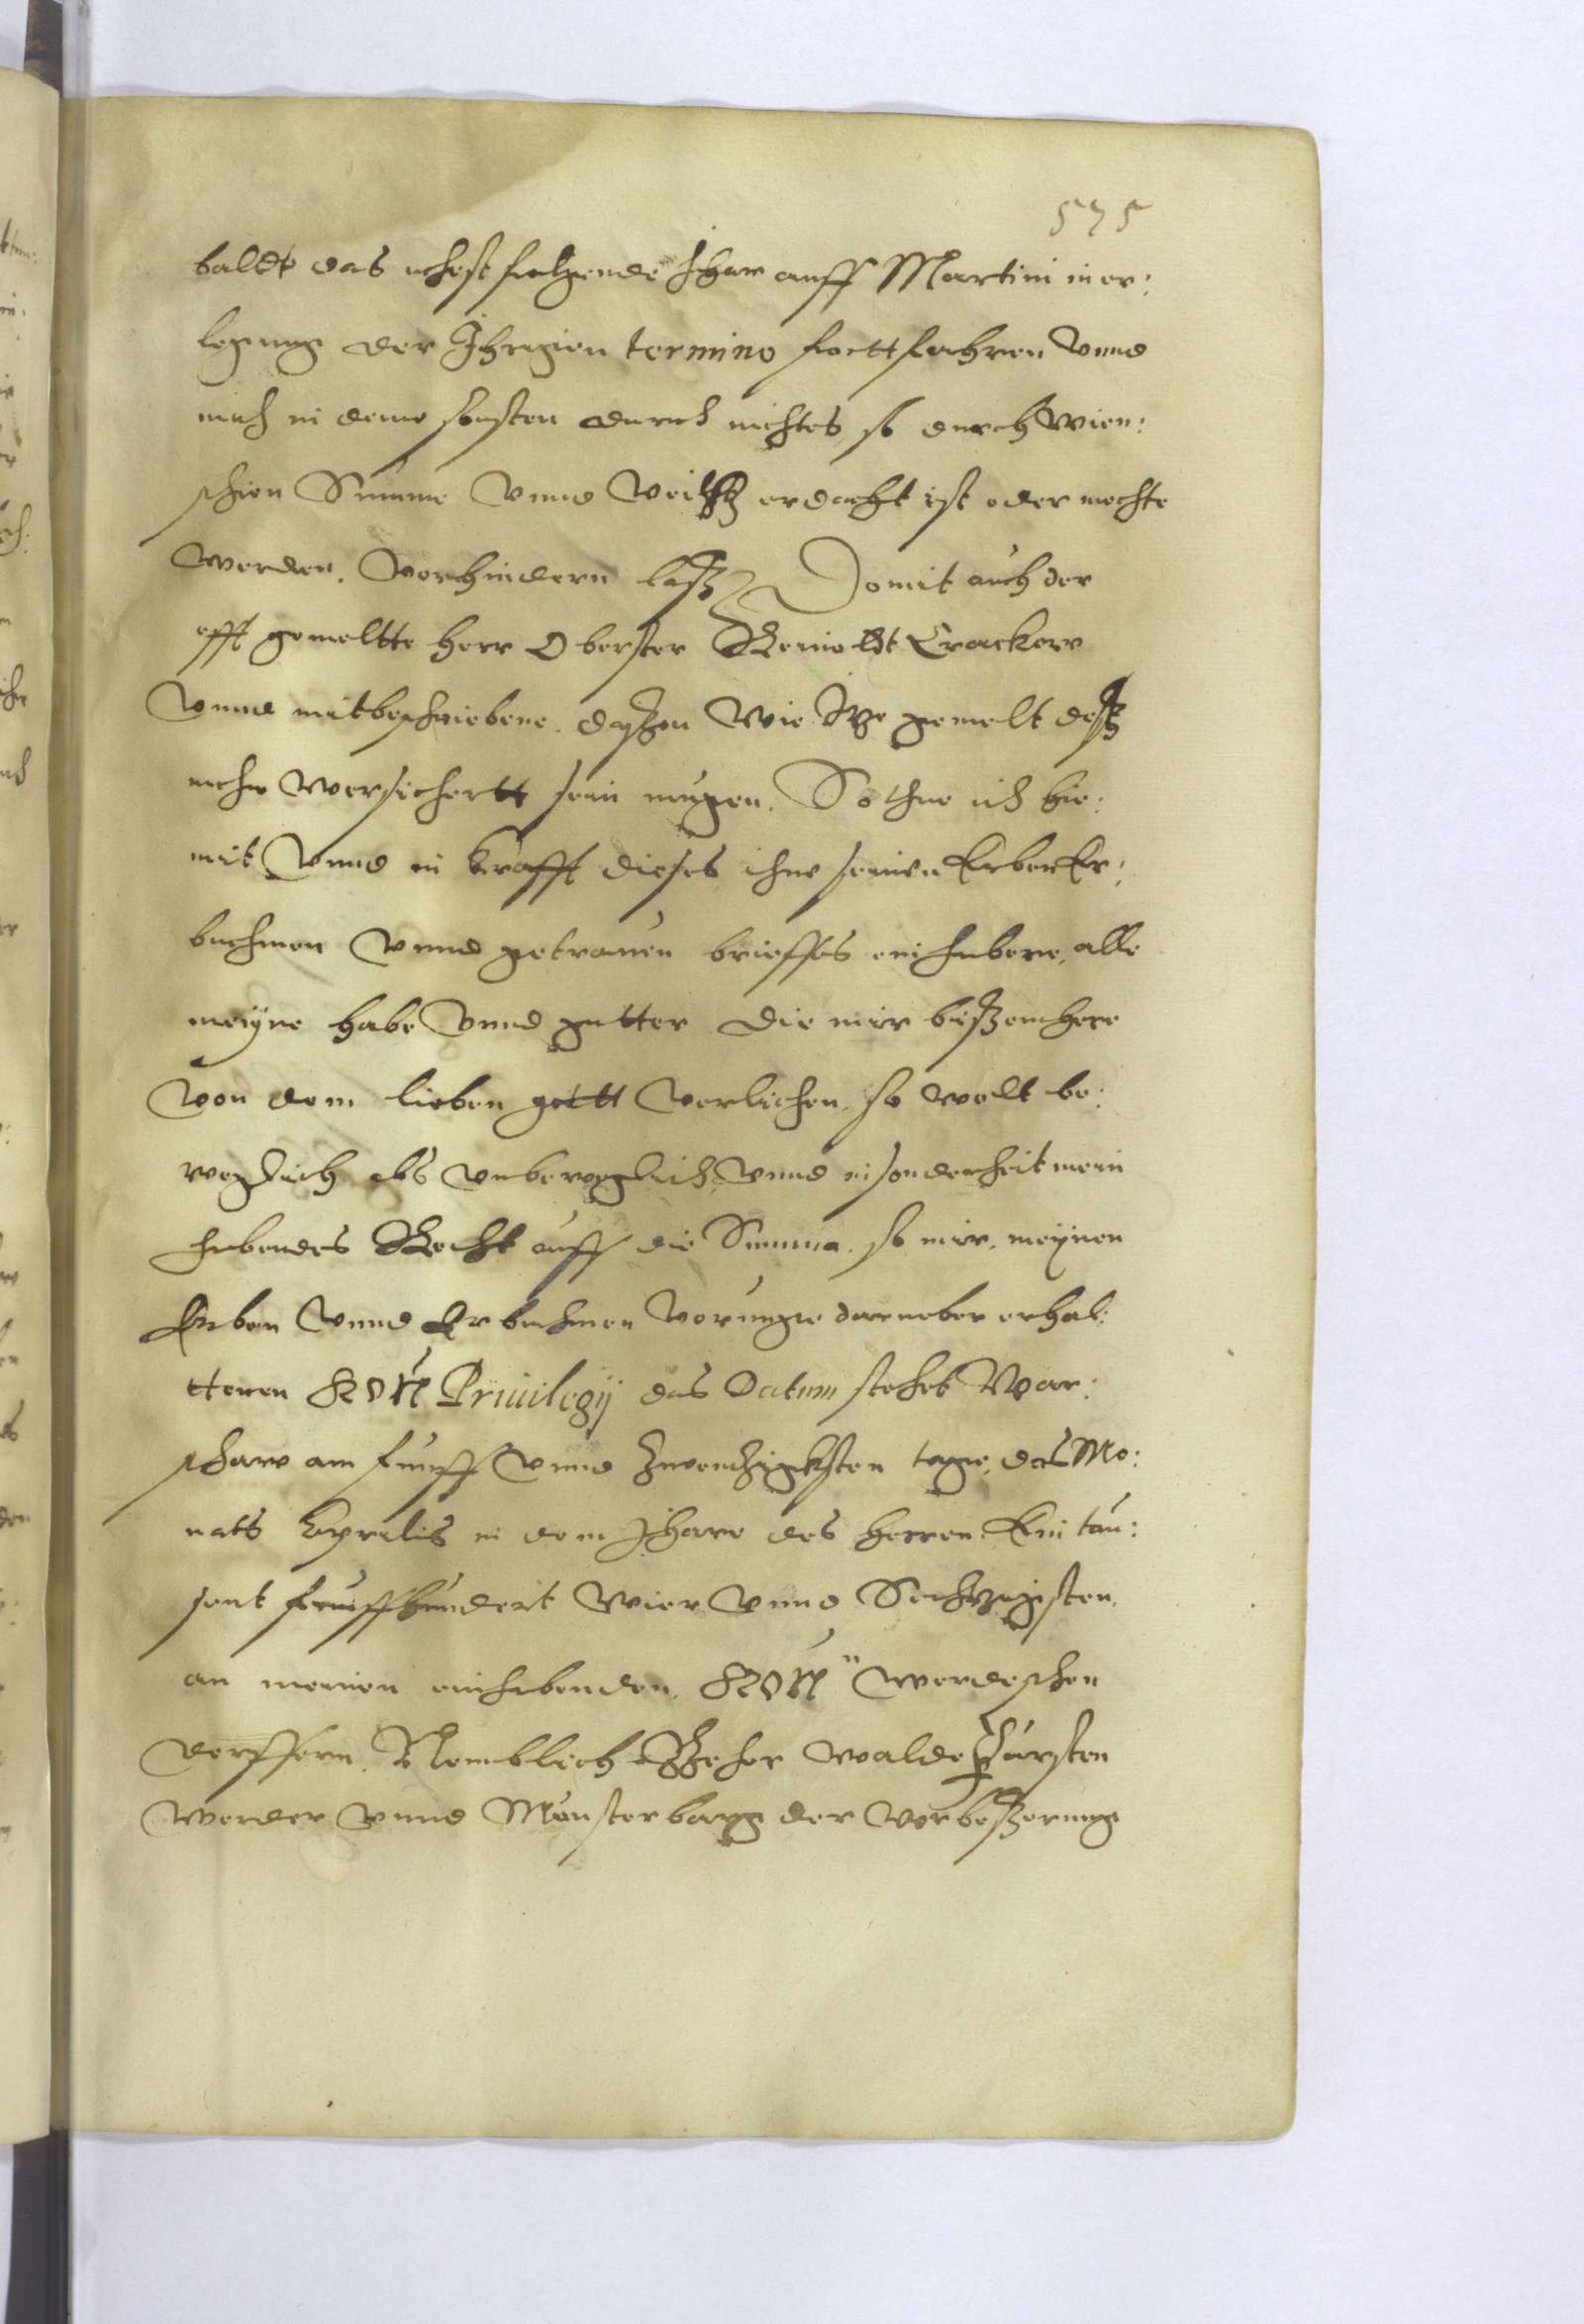 575
baldt das nehest folgende Jhar auff Martini in er:
legung der Jhrigen termino forttfahren vnnd
mich in deme sonsten durch nichtes, so durch Men:
schen Sinne vnnd Weißh erdacht ist oder mochte
werden. Vorhindern laß. Domit auch der
offt gemeltte herr Oberster Reinoldt Crackow
vnnd mitbeschriebene. deßen wie Itz gemelt deß
mehr versichertt sein mugen. So thue ich hie:
mit vnnd in krafft dieses ihm seinen Erben Er:
bnehmen vnnd getrauen brieffes einhabere, alle
meyne habe vnnd gutter die mir bißanhero
von dem lieben gott verliehen, so woll be:
weglich als vnbeweglich, vnnd insonderheit mein
habendes Recht auff die Summa. so mir. meynen
Erben vnnd Erbnehmen vormuge darueber erhal:
ttenen Kön Priuilegij das Datum stehet War:
schaw am funff vnnd zwentzigksten tage, des Mo:
nats Aprilis in dem Jhare des herren Ein tau:
sent funffhundert Vier vnnd Sechtzigsten.
an meinen einhabenden. Kön werdeschen
dorffern. Nemblich Beher walde Fursten
werder vnnd Munsterbarg der vorbeßerung